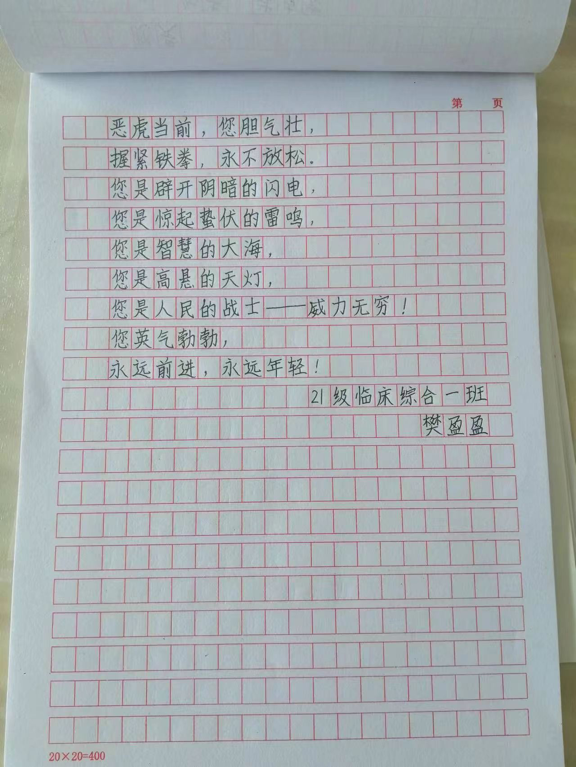 第 页
恶虎当前，您胆气壮，
握紧铁拳，永不放松。
您是辟开阴暗的闪电，
您是惊起蛰伏的雷鸣，
您是智慧的大海，
您是高悬的天灯，
您是人民的战士——威力无穷！
您英气勃勃，
永远前进，永远年轻！
21级临床综合一班
樊盈盈
20×20=400